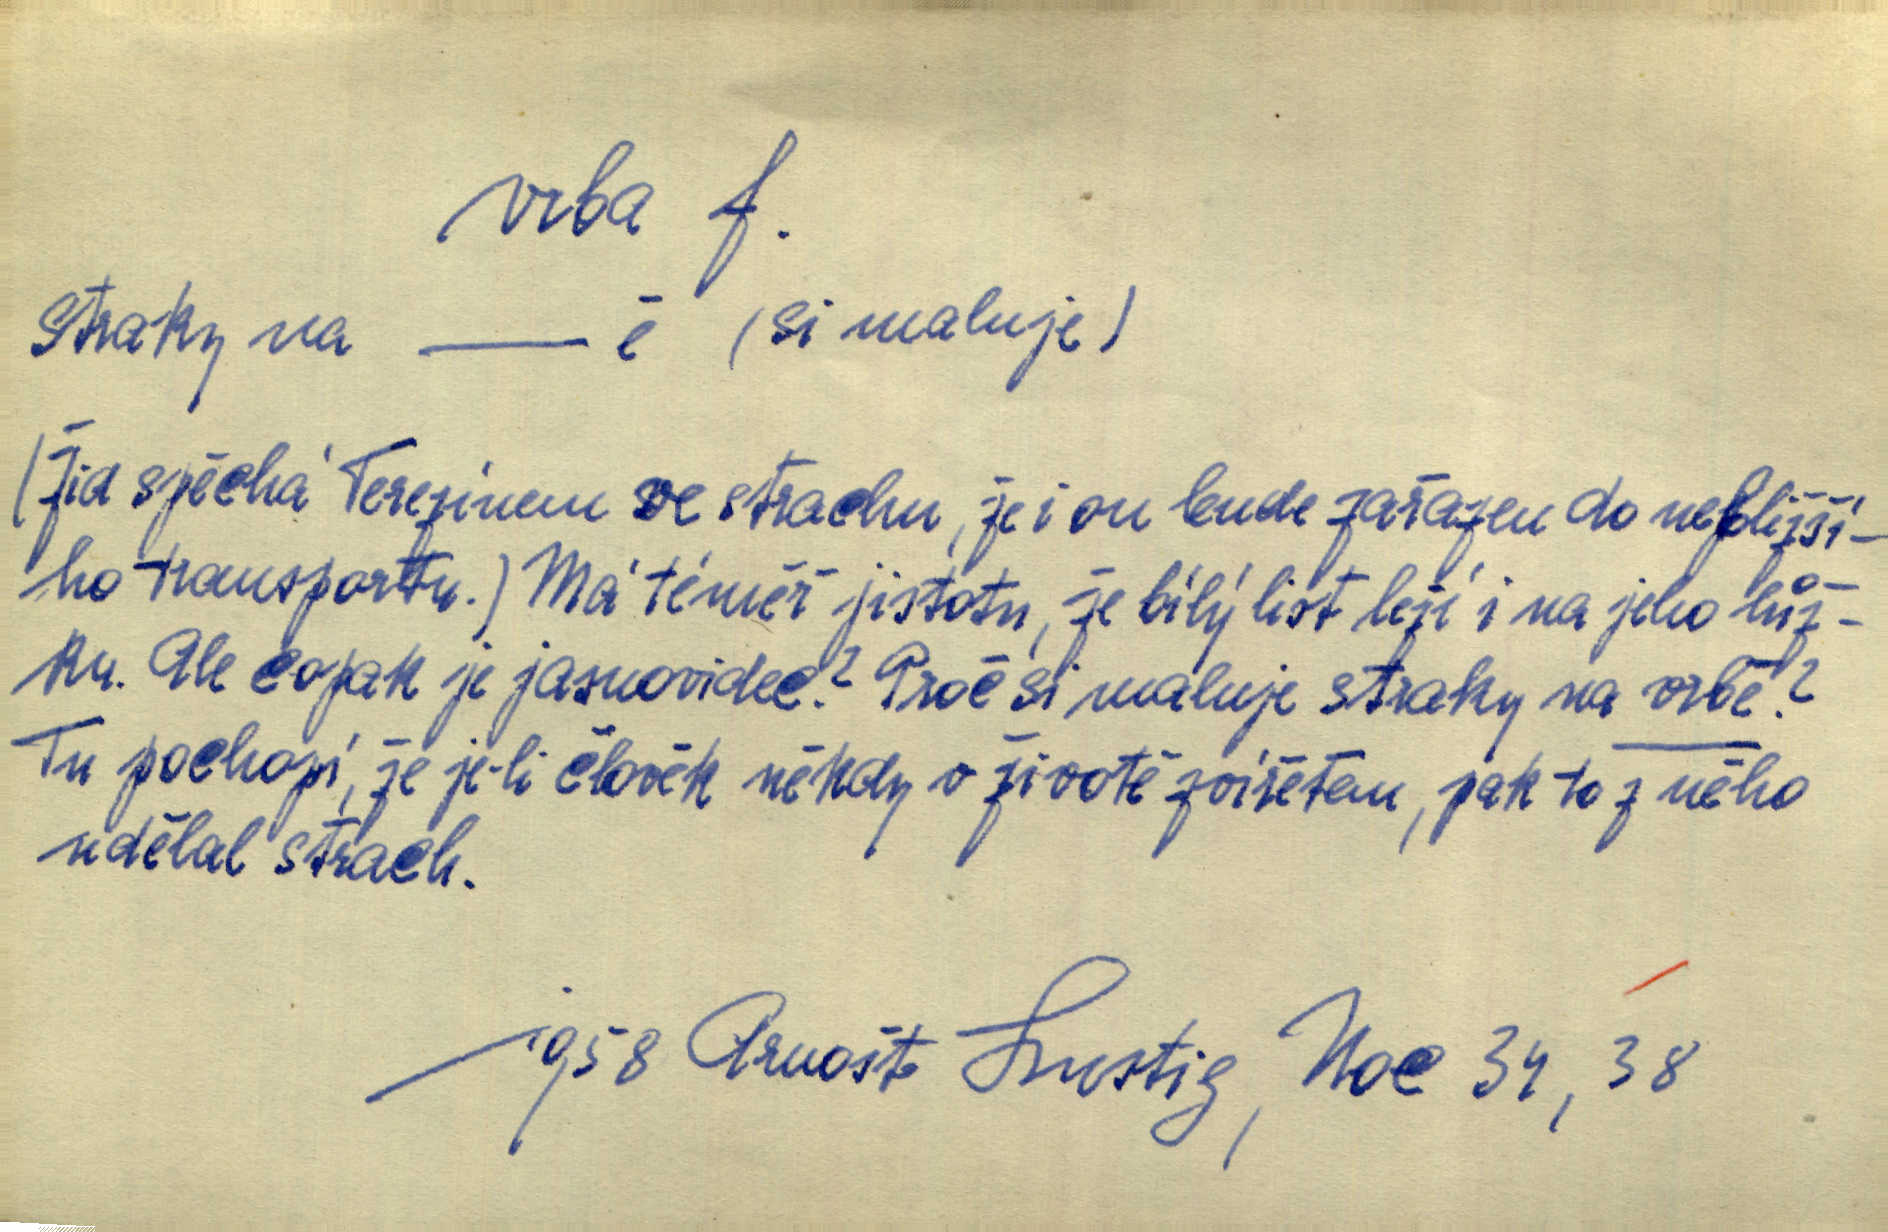 vrba f.
straky na ——— ě (si maluje)
(Žid spěchá Terezínem ve strachu, že i on bude zařazen do nejbližší-
ho transportu.) Má téměř jistotu, že bílý list leží i na jeho lůž-
ku. Ale copak je jasnovidec? Proč si maluje straky na vrbě?
Tu pochopí, že je-li člověk někdy v životě zvířetem, pak to z něho
udělal strach.
1958 Arnošt Lustig, Noc 34, 38